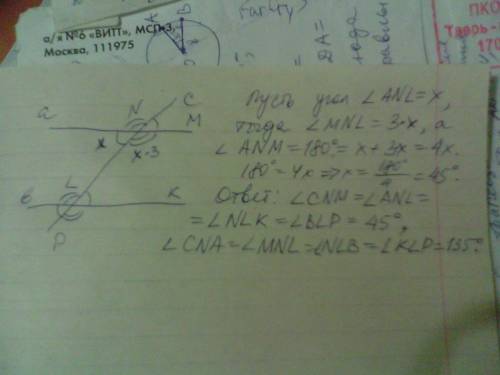 а/я №6 «ВИП», МСП-3,
Москва, 111975
A
B
ПКО
Тверь-
170
2A=
a
N
C
M
x
x·3
в
L
K
P
Пусть угол ∠ANL=x,
тогда ∠MNL=3·x, а
∠ANM=180°=x+3x=4x.
180°=4x⇒x=180°/4=45°.
Ответ: ∠CNM=∠ANL=
=∠NLK=∠BLP=45°,
∠CNA=∠MNL=∠NLB=∠KLP=135°.